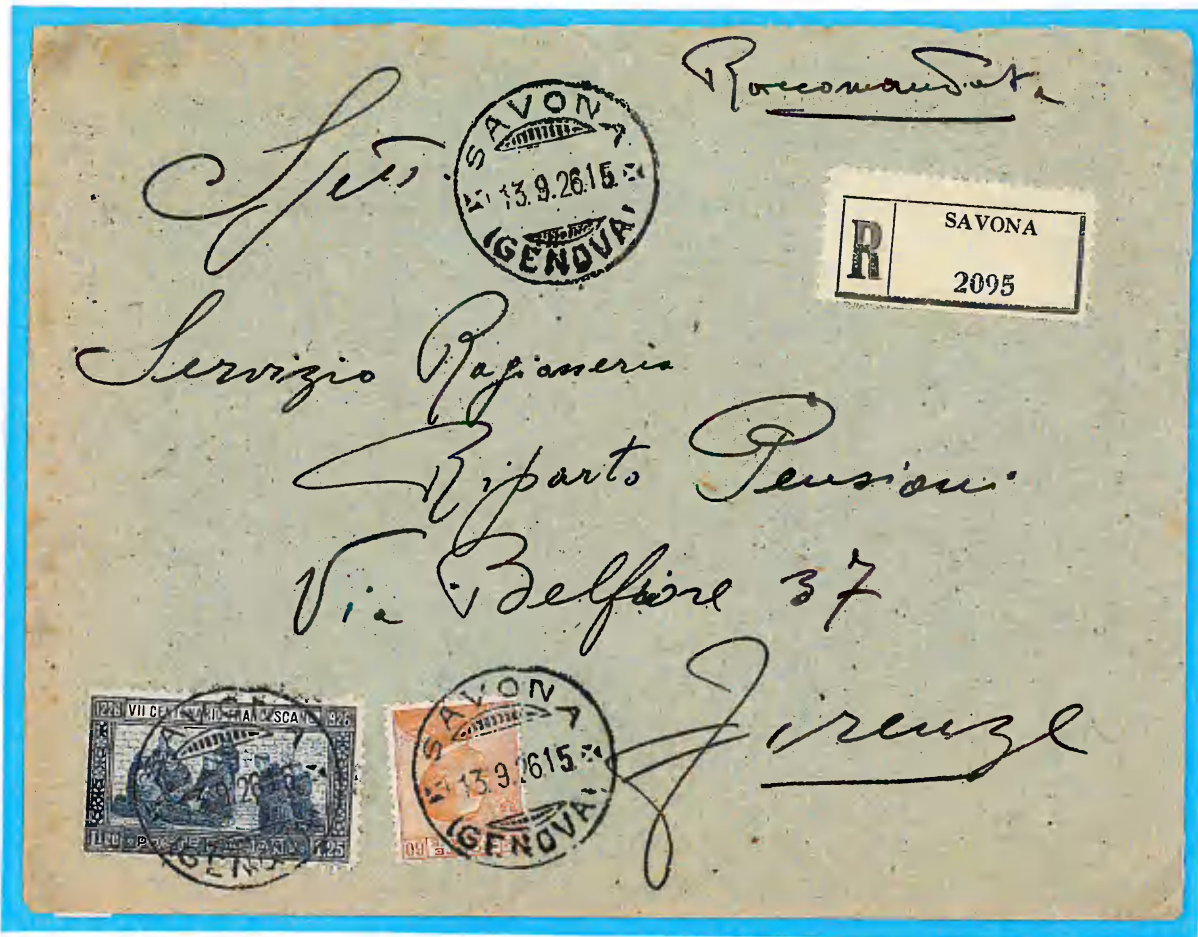 Raccomandata
Spett.
SAVONA
13.9.26 15
(GENOVA)
R
SAVONA
2095
Servizio Ragioneria
Riparto Pensioni
Via Belfiore 37
Firenze
1226 VII CENTENARIO FRANCESCANO 1926
POSTE ITALIANE
1,25
SAVONA
(GENOVA)
60
SAVONA
13.9.26 15
(GENOVA)